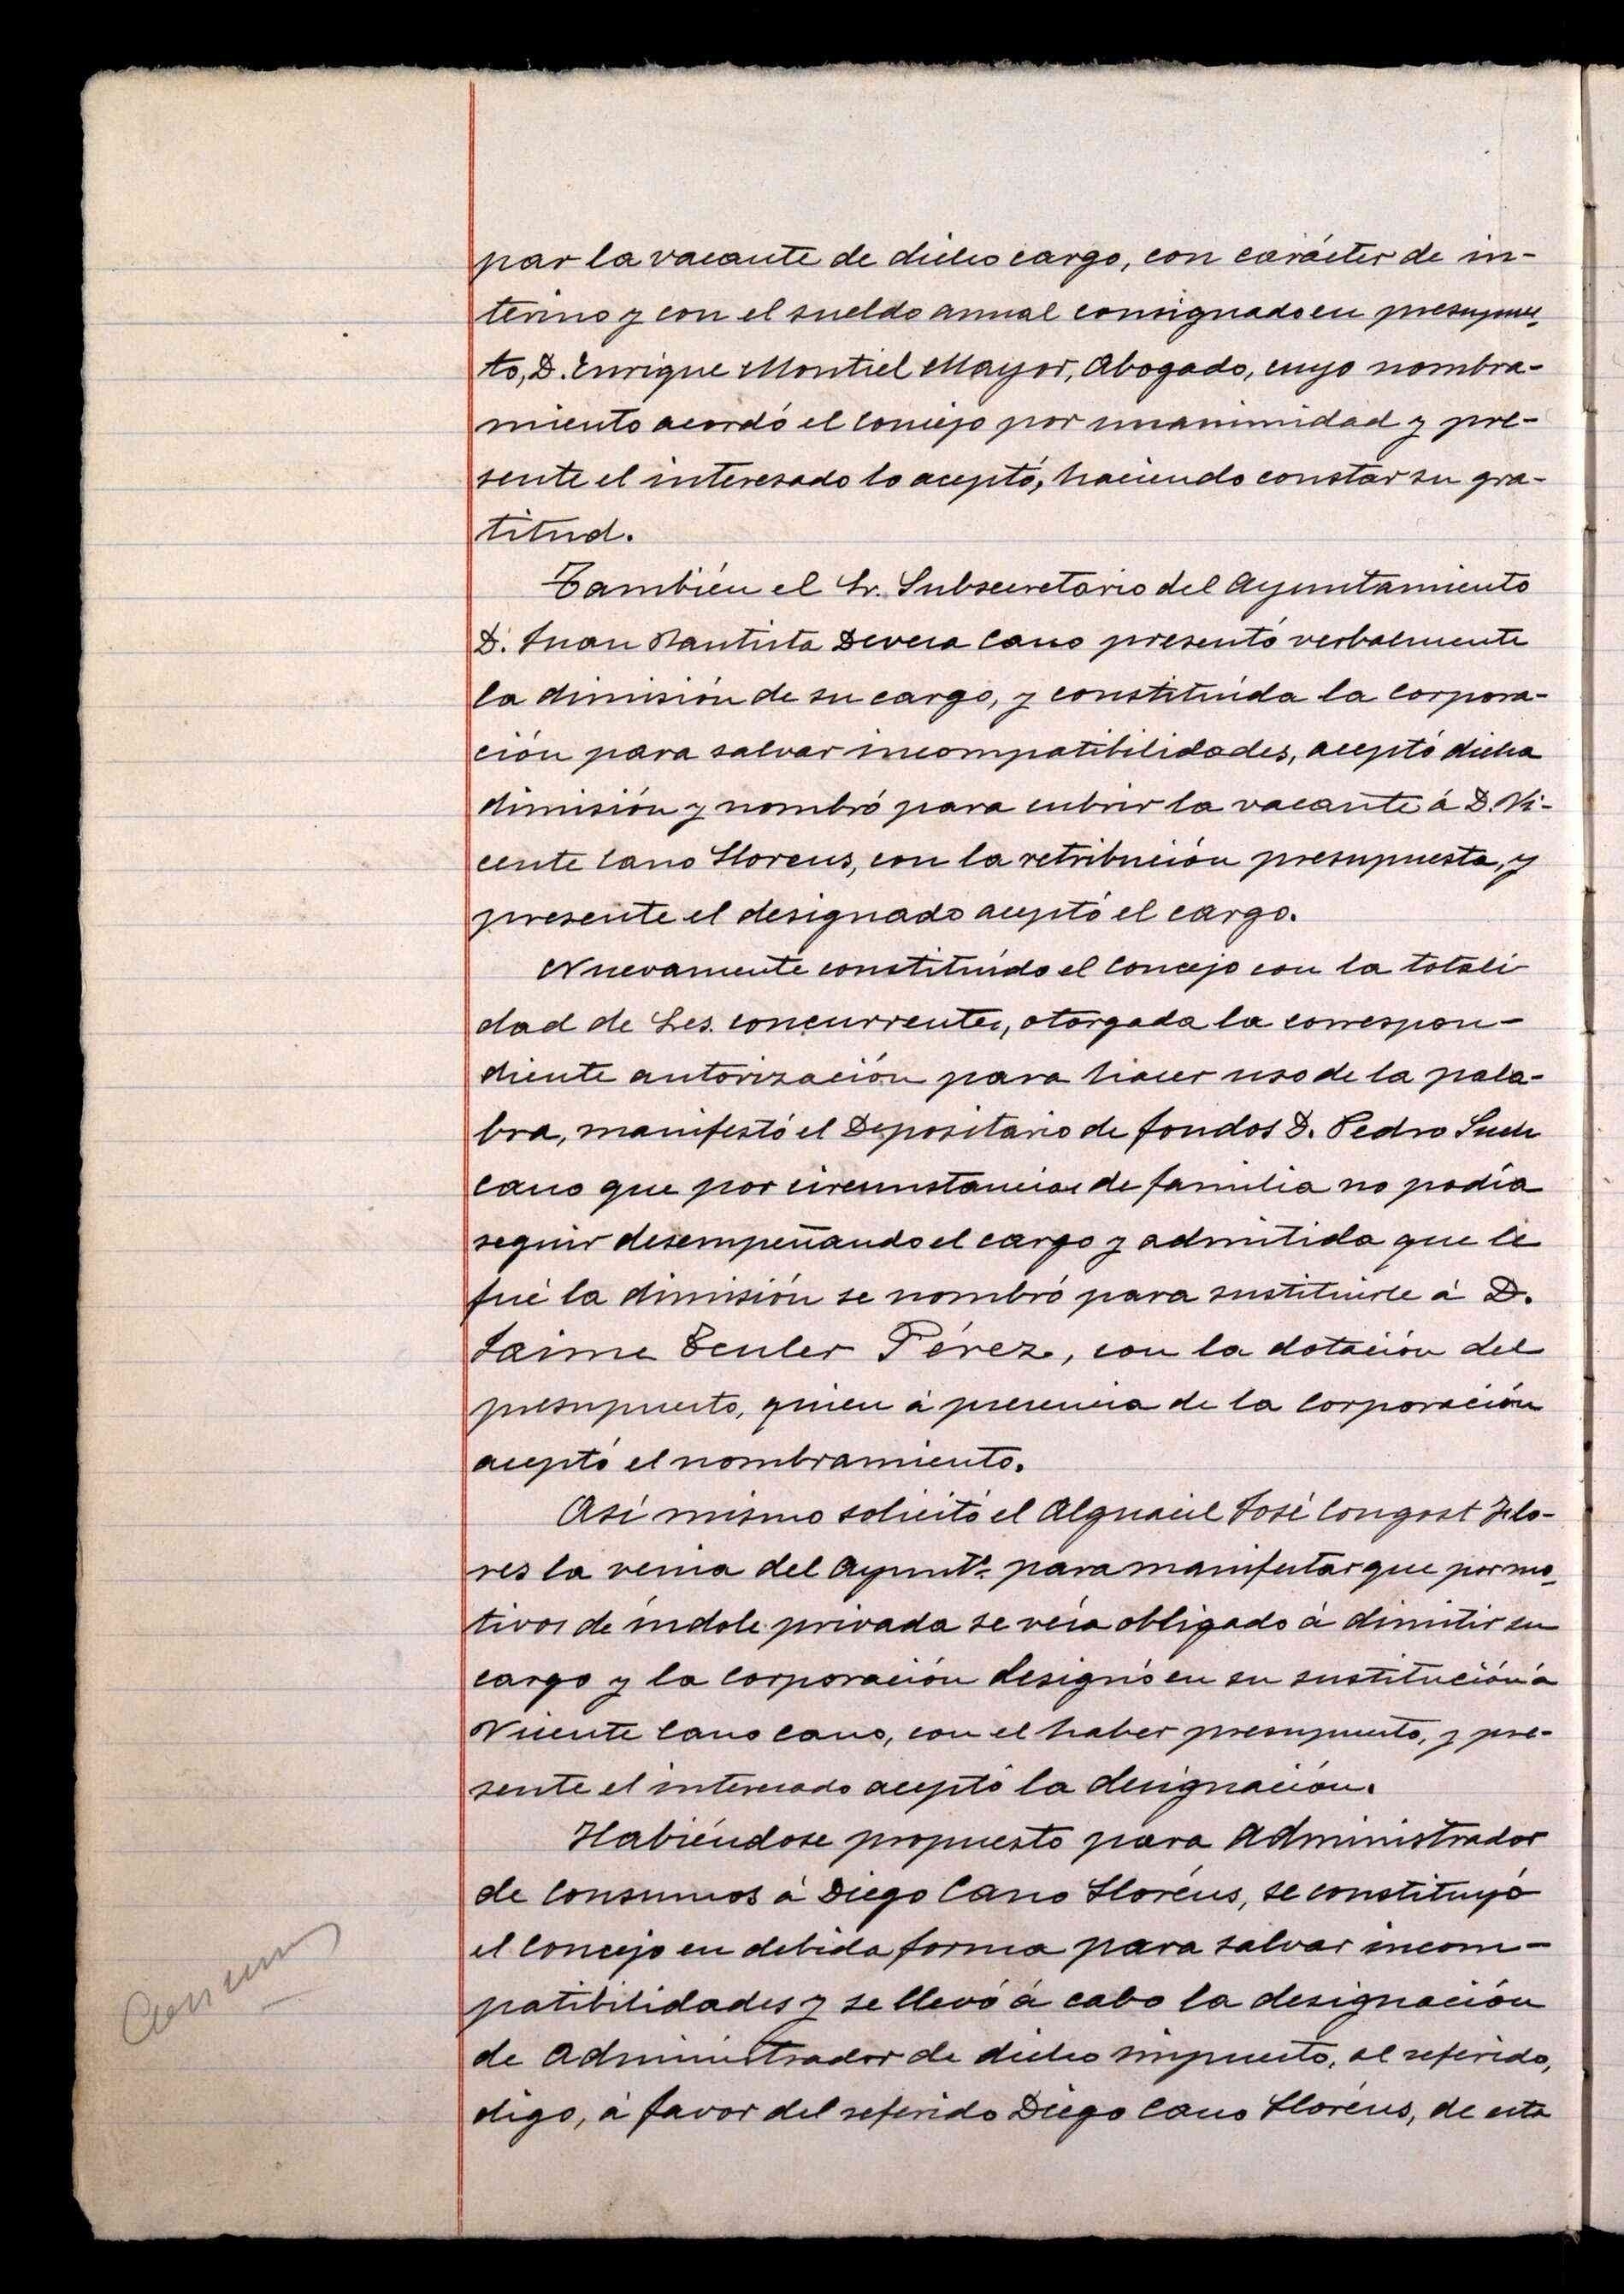 par la vacante de dicho cargo, con carácter de in-
terino y con el sueldo anual consignado en presupues-
to, D. Enrique Montiel Mayor, Abogado, cuyo nombra-
miento acordó el Concejo por unanimidad y pre-
sente el interesado lo aceptó, haciendo constar su gra-
titud.
También el Sr. Subsecretario del Ayuntamiento
D. Juan Bautista Devesa Cano presentó verbalmente
la dimisión de su cargo, y constituída la Corpora-
ción para salvar incompatibilidades, aceptó dicha
dimisión y nombró para cubrir la vacante á D. Vi-
cente Cano Llorens, con la retribución presupuesta, y
presente el designado aceptó el cargo.
Nuevamente constituído el Concejo con la totali-
dad de Sres. concurrentes, otorgada la correspon-
diente autorización para hacer uso de la pala-
bra, manifestó el Depositario de fondos D. Pedro Such
Cano que por circunstancias de familia no podía
seguir desempeñando el cargo y admitida que le
fué la dimisión se nombró para sustituirle á D.
Jaime Pérez, con la dotación del
presupuesto, quien á presencia de la Corporación
aceptó el nombramiento.
Así mismo solicitó el Alguacil José Longost Llo-
res la venia del Ayuntº para manifestar que por mo-
tivos de índole privada se veía obligado á dimitir su
cargo y la Corporación designó en su sustitución á
Vicente Cano Cano, con el haber presupuesto, y pre-
sente el interesado aceptó la designación.
Habiéndose propuesto para Administrador
de Consumos á Diego Cano Lloréns, se constituyó
el Concejo en debida forma para salvar incom-
patibilidades y se llevó á cabo la designación
de Administrador de dicho impuesto, al referido,
digo, á favor del referido Diego Cano Lloréns, de esta
Consumos